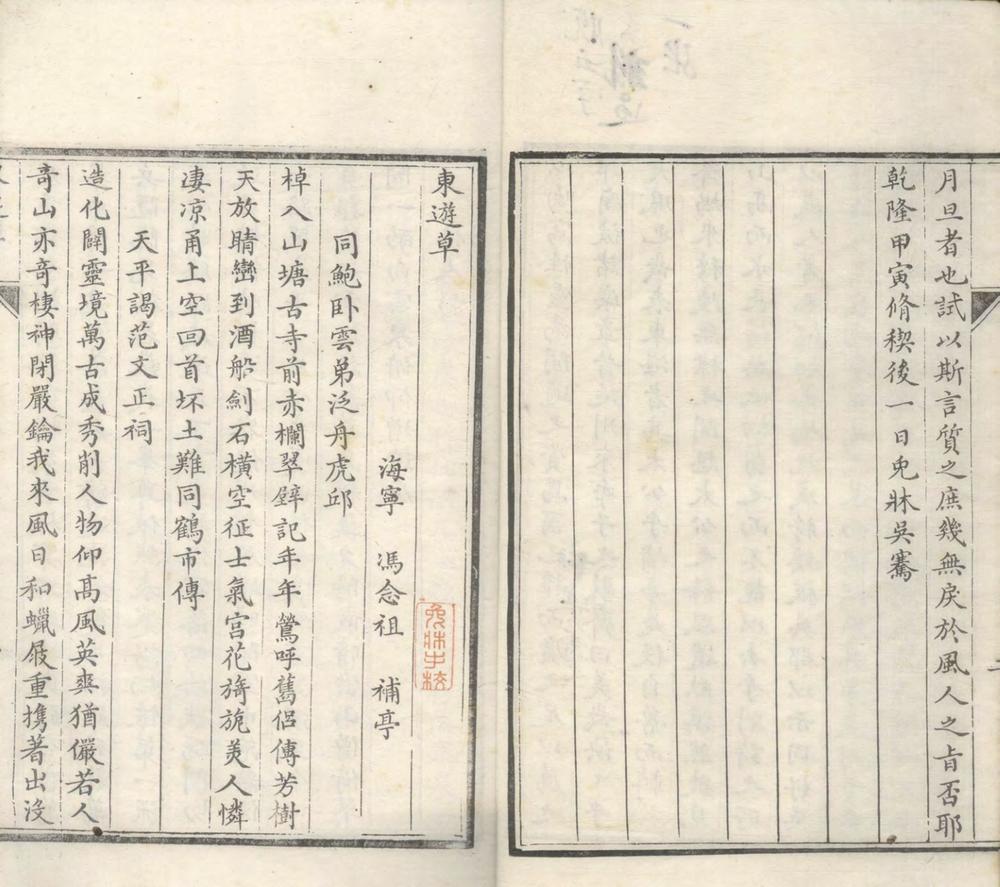 月旦者也試以斯言質之庶幾無戾於風人之旨否耶
乾隆甲寅脩稧後一日兎牀吳騫
東遊草
海寧 馮念祖 補亭
同鮑卧雲弟泛舟虎邱
棹入山塘古寺前赤欄翠辥記年年鶯呼舊侣傳芳樹
天放晴巒到酒船劍石橫空征士氣宫花旖旎美人憐
凄凉甬上空回首坏土難同鶴市傳
天平謁范文正祠
造化闢靈境萬古成秀削人物仰髙風英爽猶儼若人
竒山亦竒棲神閉嚴鑰我來風日和蠟屐重攜著出沒